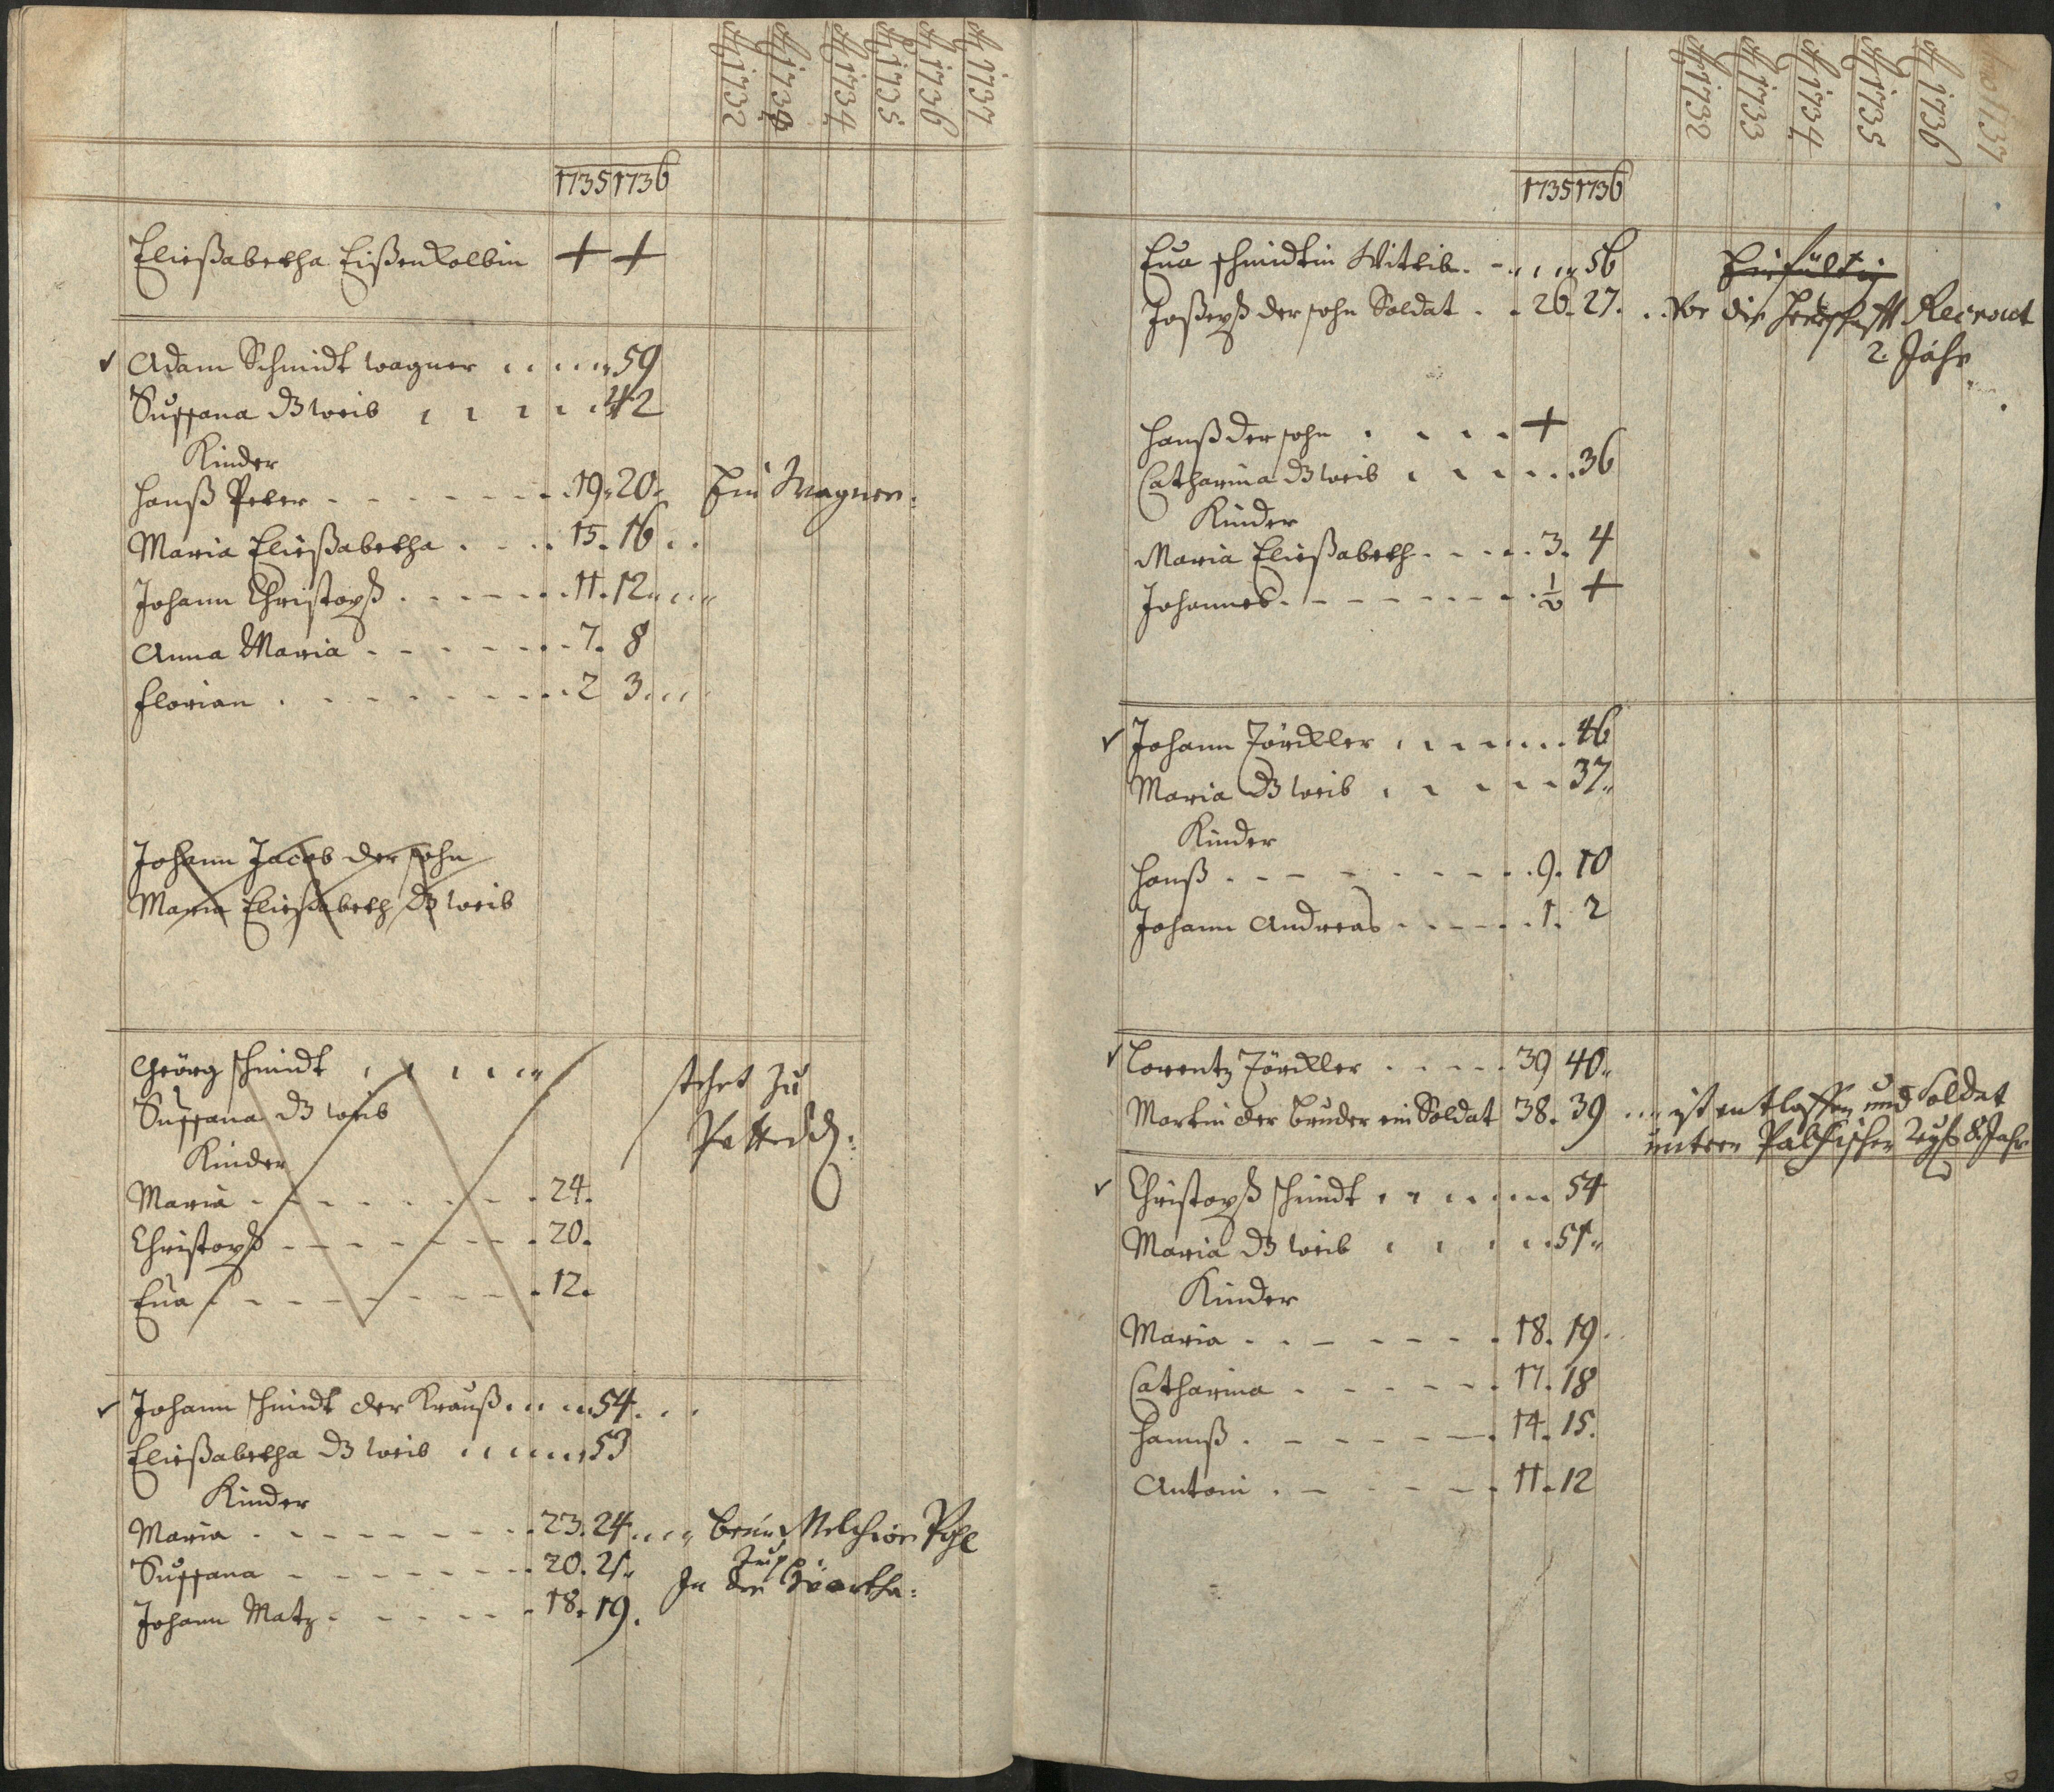 Ao 1732
Ao 1733
Ao 1734
Ao 1735
Ao 1736
Ao 1737
1735 1736
Eließabetha Eißenkolbin + +
Adam Schmidt wagner 59
Sussana ds weib 42
Kinder
Hanß Peter 19. 20. Ein Wagner:
Maria Eließabetha 15. 16
Johann Christoph 11. 12
Anna Maria 7. 8
Florian 2 3
Johann Jacob der sohn
Maria Eließabeth ds weib
Geörg schmidt stehet zu
Sussana ds weib
Kinder
Maria 24.
Christoph 20.
Eua 12.
Johann schmidt der Krauß 54
Eließabetha ds weib 53
Kinder
Maria 23. 24 beim Melchior Pohl
Sussana 20. 21. In der
Johann Matz 18. 19.
Ao 1732
Ao 1733
Ao 1734
Ao 1735
Ao 1736
Anno 1737
1735 1736
Eua schmidtin Wittib 56 Einfältig
Joseph der sohn Soldat 26. 27. Vor die Herrschafft Recrout
2. Jahr
Hanß der sohn +
Catharina ds weib 36
Kinder
Maria Eließabeth 3. 4
Johannes ½ +
Johann Jörckler 46
Maria ds weib 37
Kinder
Hanß 9. 10
Johann Andreas 1. 2
Lorentz Jörckler 39 40
Martin der bruder ein Soldat 38. 39 ist entlassen und Soldat
untern Palfischen 8. Jahr
Christoph schmidt 54
Maria ds weib 51
Kinder
Maria 18. 19.
Catharina 17. 18
Hannß 14. 15.
Antoni 11. 12